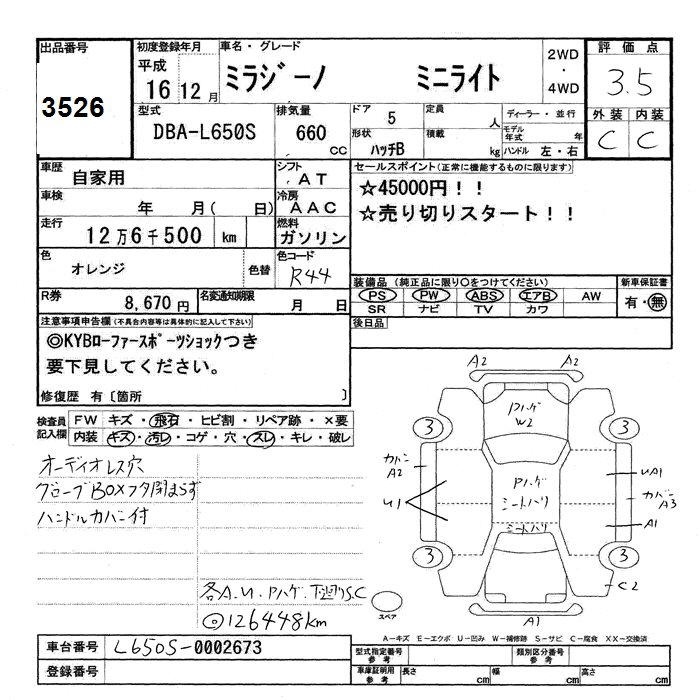 出品番号
3526
初度登録年月
平成
16 12 月
車名・グレード
ミラジーノ ミニライト
2WD
・
4WD
評価点
3.5
型式
DBA-L650S
排気量
660
cc
ドア 5
形状 ハッチB
定員 人
積載 kg
ディーラー・並行
モデル年式 年
ハンドル 左・右
外装 内装
C C
車歴
自家用
シフト
AT
車検
年 月( 日)
冷房
AAC
走行
12万6千500 km
燃料
ガソリン
色
オレンジ
色替
色コード
R44
R券
8,670円
名変通知期限
月 日
セールスポイント(正常に機能するものに限ります)
☆45000円!!
☆売り切りスタート!!
装備品 (純正品に限り○をつけてください)
PS PW ABS エアB AW
SR ナビ TV カワ
新車保証書
有・無
後日品
注意事項申告欄(不具合内容等は具体的に記入して下さい)
◎KYBローファースポーツショックつき
要下見してください。
修復歴 有〔箇所 〕
検査員
記入欄
FW キズ・飛石・ヒビ割・リペア跡・×要
内装 キズ・汚レ・コゲ・穴・スレ・キレ・破レ
オーディオレス穴
グローブBOXフタ閉まらず
ハンドルカバー付
各A.U.Pハゲ.下廻りS.C
◎126448km
A2 A2
Pハゲ
W2
3 3
カバー
A2
U1
Pハゲ
シートハリ
シートハリ
UA1
カバー
A3
A1
3 3
C2
スペア
A1
A−キズ E−エクボ U−凹み W−補修跡 S−サビ C−腐食 XX−交換済
車台番号
L650S-0002673
登録番号
型式指定番号
参考
類別区分番号
参考
車庫証明用
参考
長さ cm 幅 cm 高さ cm